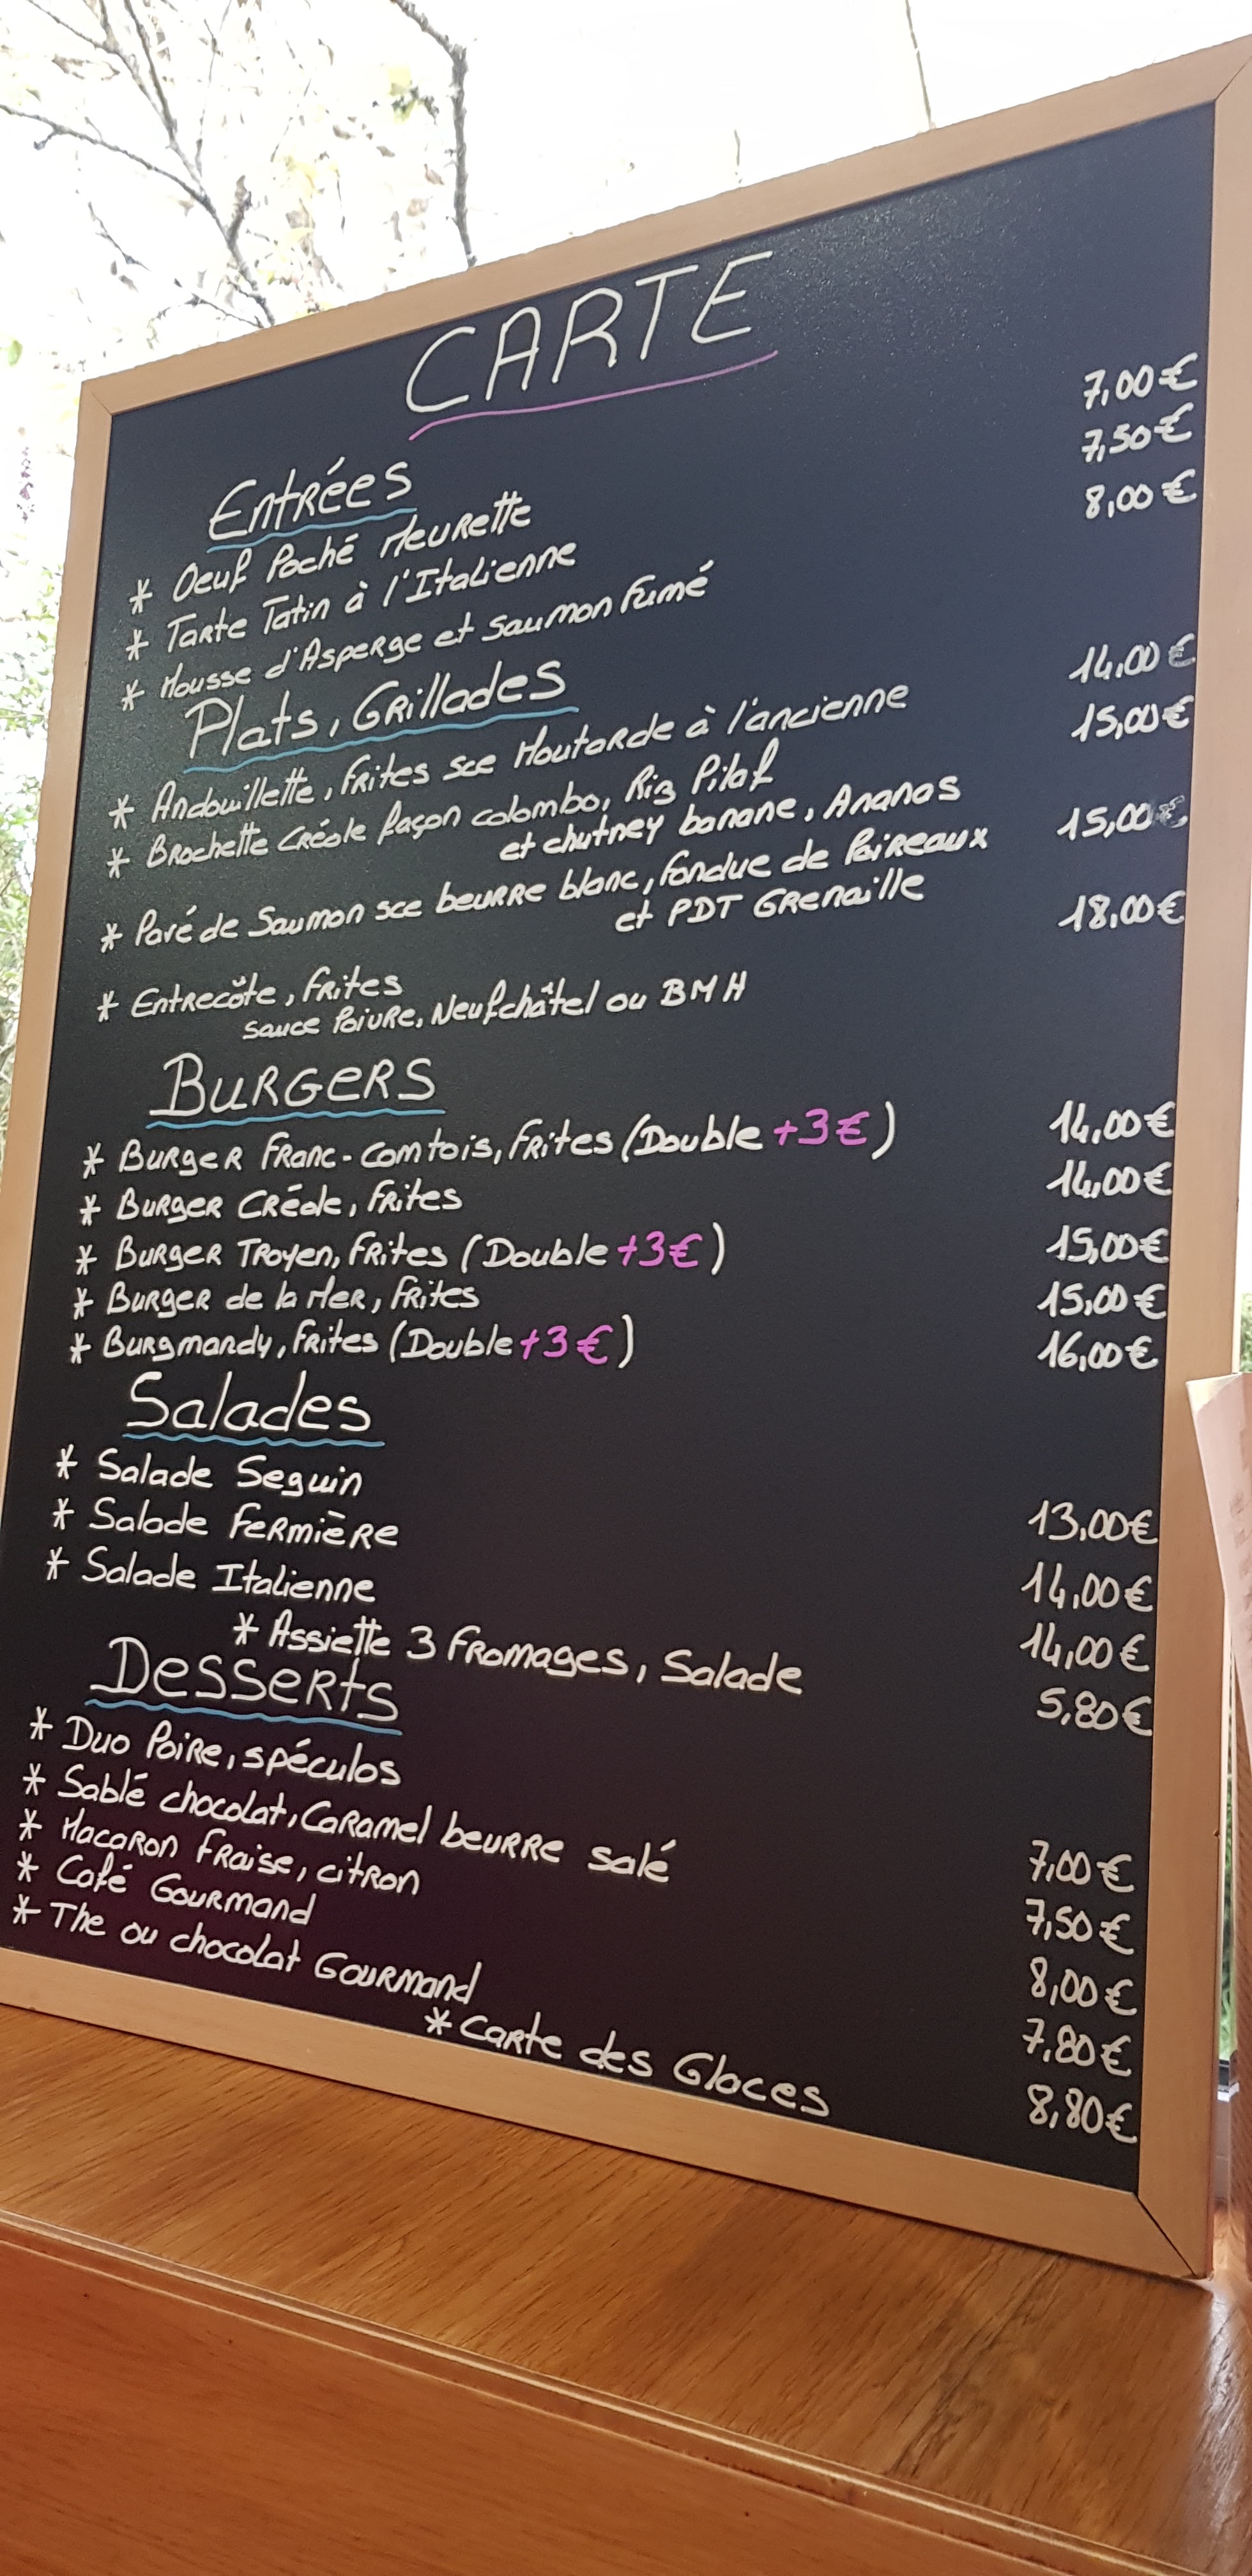 CARTE
Entrées
* Oeuf Poché Meurette 7,00€
* Tarte Tatin à l'Italienne 7,50€
* Mousse d'Asperge et Saumon Fumé 8,00€
Plats, Grillades
* Andouillette, Frites sce Moutarde à l'ancienne 14,00€
* Brochette Créole façon colombo, Riz Pilaf 15,00€
et chutney banane, Ananas
* Pavé de Saumon sce beurre blanc, fondue de Poireaux 15,00€
et PDT Grenaille
* Entrecôte, Frites 18,00€
sauce Poivre, Neufchâtel ou BMH
Burgers
* Burger Franc-comtois, Frites (Double +3€) 14,00€
* Burger Créole, Frites 14,00€
* Burger Troyen, Frites (Double +3€) 15,00€
* Burger de la Mer, Frites 15,00€
* Burgmandy, Frites (Double +3€) 16,00€
Salades
* Salade Seguin 13,00€
* Salade Fermière 14,00€
* Salade Italienne 14,00€
* Assiette 3 Fromages, Salade 5,80€
Desserts
* Duo Poire, spéculos 7,00€
* Sablé chocolat, Caramel beurre salé 7,50€
* Macaron Fraise, citron 8,00€
* Café Gourmand 7,80€
* The ou chocolat Gourmand 8,80€
* Carte des Glaces